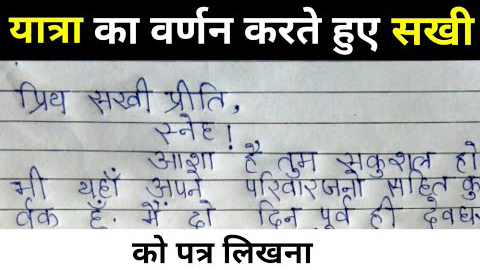 यात्रा का वर्णन करते हुए सखी
प्रिय सखी प्रीति,
स्नेह!
आशा है तुम सकुशल हो
भी यहाँ अपने परिवारजनों सहित कु
र्वक हूं. मैं दो दिन पूर्व ही देवघर
को पत्र लिखना